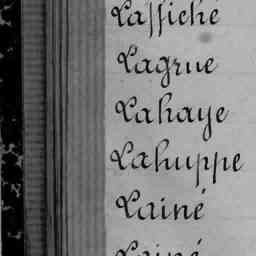 Laffiché
Lagrue
Lahaye
Lahuppe
Lainé
Lainé